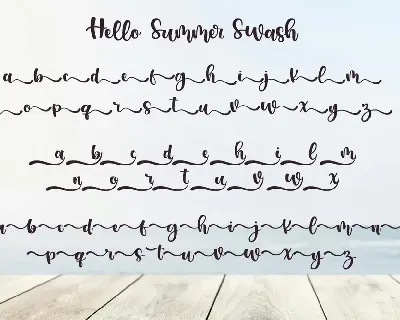 Hello Summer Swash
a b c d e f g h i j k l m
o p q r s t u v w x y z
a b c d e h i l m
n o r t u v w x
a b c d e f g h i j k l m n
p q r s t u v w x y z